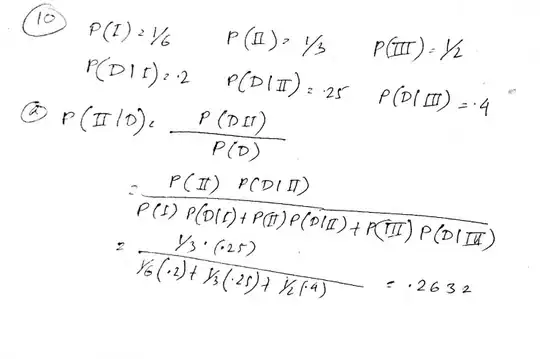 10 P(I) = 1/6 P(II) = 1/3 P(III) = 1/2
P(D|I) = .2 P(D|II) = .25 P(D|III) = .4
a P(II|D) = P(DII) / P(D)
= P(II) P(D|II) / P(I) P(D|I) + P(II) P(D|II) + P(III) P(D|III)
= 1/3 · (.25) / 1/6(.2) + 1/3(.25) + 1/2(.4) = .2632